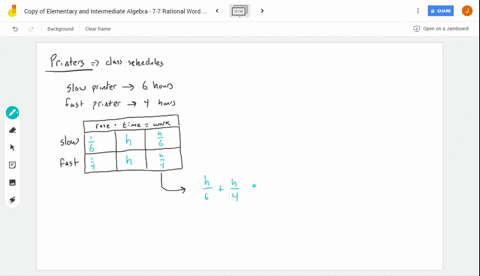 Copy of Elementary and Intermediate Algebra - 7-7 Rational Word
Open on a Jamboard
Background
Clear frame
Printers => class schedules
slow printer → 6 hours
fast printer → 4 hours
rate · time = work
slow 1/6 h h/6
fast 1/4 h h/4
h/6 + h/4